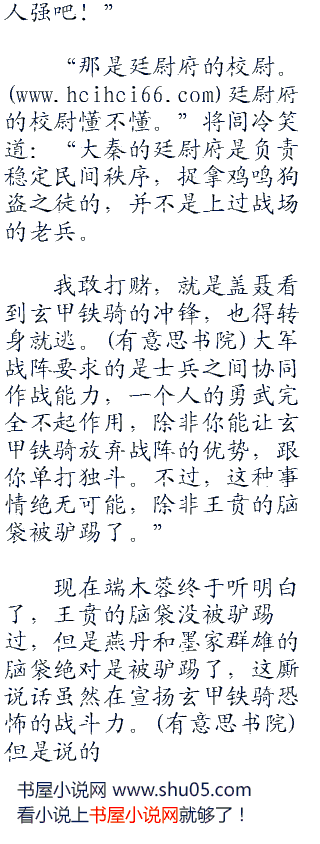 人强吧！”
“那是廷尉府的校尉。
(www.hcihci66.com)廷尉府
的校尉懂不懂。”将闾冷笑
道：“大秦的廷尉府是负责
稳定民间秩序，捉拿鸡鸣狗
盗之徒的，并不是上过战场
的老兵。
我敢打赌，就是盖聂看
到玄甲铁骑的冲锋，也得转
身就逃。(有意思书院)大军
战阵要求的是士兵之间协同
作战能力，一个人的勇武完
全不起作用，除非你能让玄
甲铁骑放弃战阵的优势，跟
你单打独斗。不过，这种事
情绝无可能，除非王贲的脑
袋被驴踢了。”
现在端木蓉终于听明白
了，王贲的脑袋没被驴踢
过，但是燕丹和墨家群雄的
脑袋绝对是被驴踢了，这厮
说话虽然在宣扬玄甲铁骑恐
怖的战斗力。(有意思书院)
但是说的
书屋小说网 www.shu05.com
看小说上书屋小说网就够了！